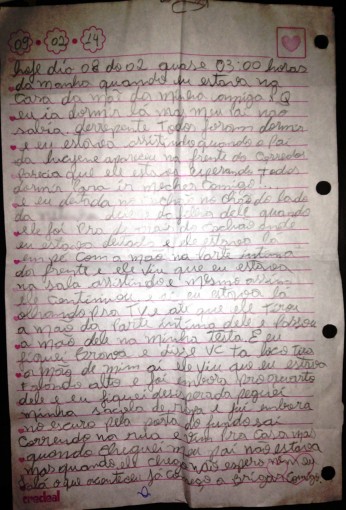 09 02 14
hoje dia 08 do 02 quase 03:00 horas
da manha quando eu estava na
casa da mãe da minha amiga Q
eu ia dormir la mas meu pai não
sabia, derrepente todos foram dormir
e eu estava assistindo quando o pai
da apareceu na frente do corredor
parecia que ele estava esperando todos
dormir para ir mecher comigo...
e eu deitada no chão do lado
da dele quando
ele foi pra do colchão onde
eu estava deitada e
em pé com a mão na parte intima
da frente e ele viu que eu estava
na sala assistindo e mesmo assim
ele continuou e eu estava
olhando pra TV e até que ele tirou
a mão da parte intima dele e passou
a mão dele na minha testa. E eu
fiquei branca e disse vc ta loco tira
a mão de mim ai ele viu que eu estava
falando alto e foi embora pro quarto
dele e eu fiquei desesperada peguei
minha sacola de ropa e fui embora
no escuro pela porta do fundo sai
correndo na rua e vim pra casa mas
quando cheguei meu pai não estava
mas quando ele chega não espero nem eu
fala o que aconteceu já começo a brigar comigo
credeal